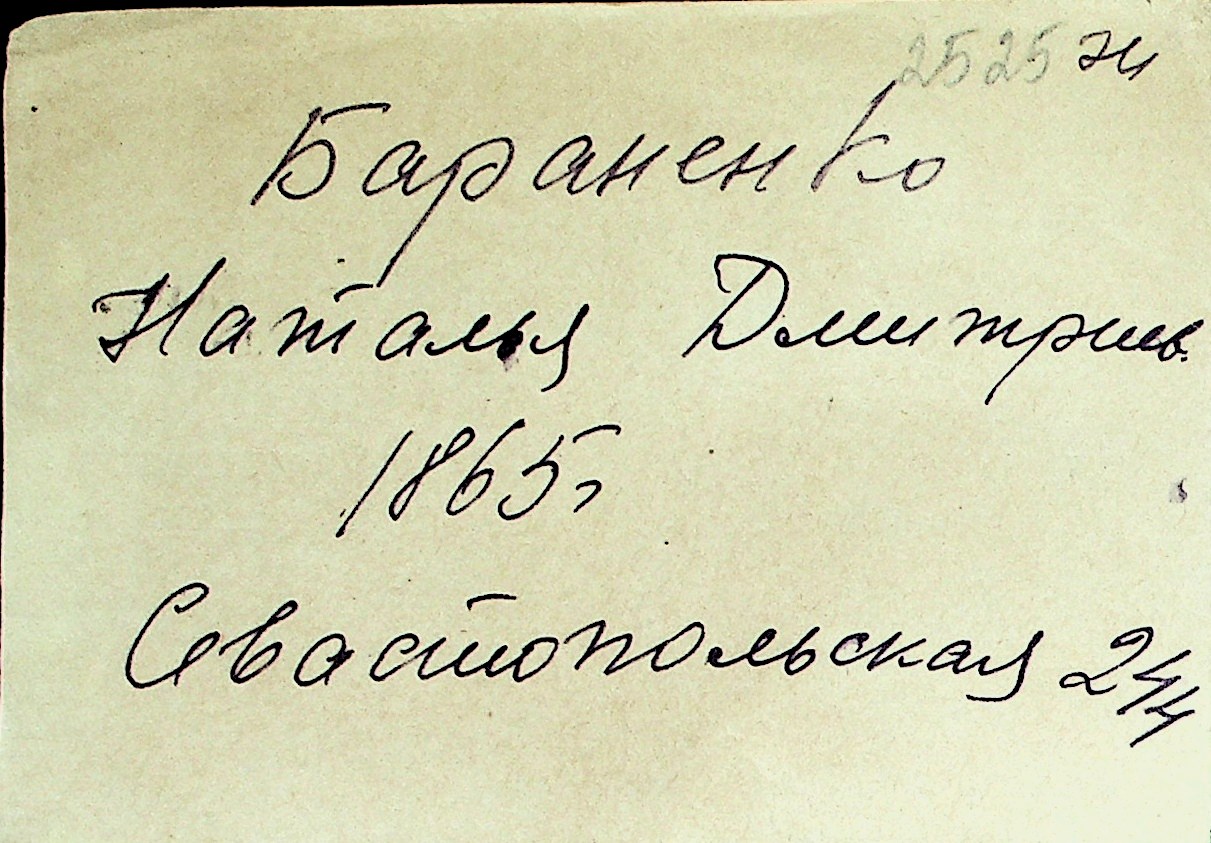 2525 н
Бараненко
Наталья Дмитриев.
1865г
Севастопольская 244